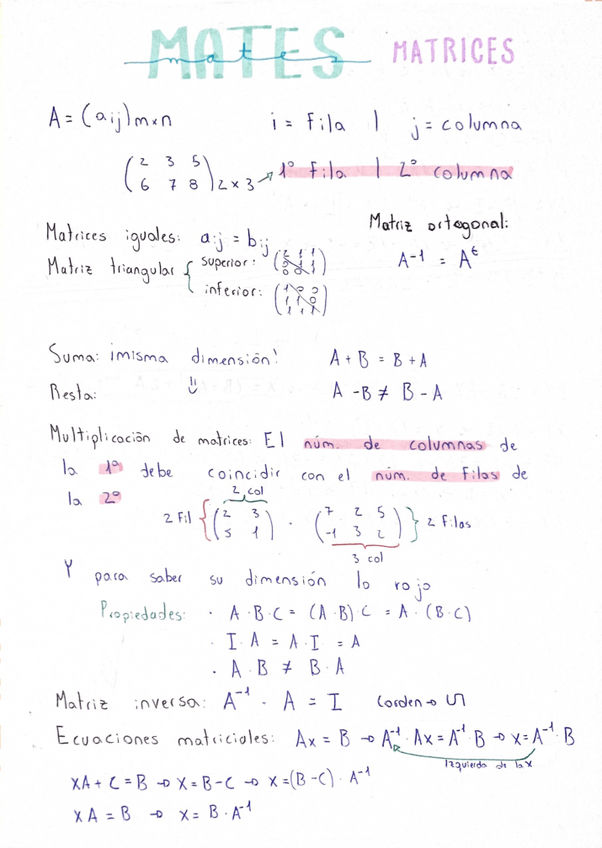 MATES
mates
MATRICES
A = (aij)m×n   i = fila | j = columna
(2 3 5
6 7 8)2×3 → 1º fila | 2º columna
Matriz ortogonal:
Matrices iguales: aij = bij
A⁻¹ = Aᵗ
Matriz triangular { superior: (2 1 1
0 1 1
0 0 1)
inferior: (1 0 0
1 1 0
1 1 1)
Suma: ¡misma dimensión!   A + B = B + A
Resta:   A - B ≠ B - A
Multiplicación de matrices: El núm. de columnas de
la 1ª debe coincidir con el núm. de filas de
la 2ª
2 col
2 Fil { (2 3
5 1) · (7 2 5
-1 3 2) } 2 filas
3 col
Y para saber su dimensión lo rojo
Propiedades: · A · B · C = (A · B) · C = A · (B · C)
· I · A = A · I = A
· A · B ≠ B · A
Matriz inversa: A⁻¹ · A = I   (orden →
Ecuaciones matriciales: Ax = B → A⁻¹ · Ax = A⁻¹ · B → x = A⁻¹ · B
Izquierda de la x
xA + C = B → x = B - C → x = (B - C) · A⁻¹
xA = B → x = B · A⁻¹